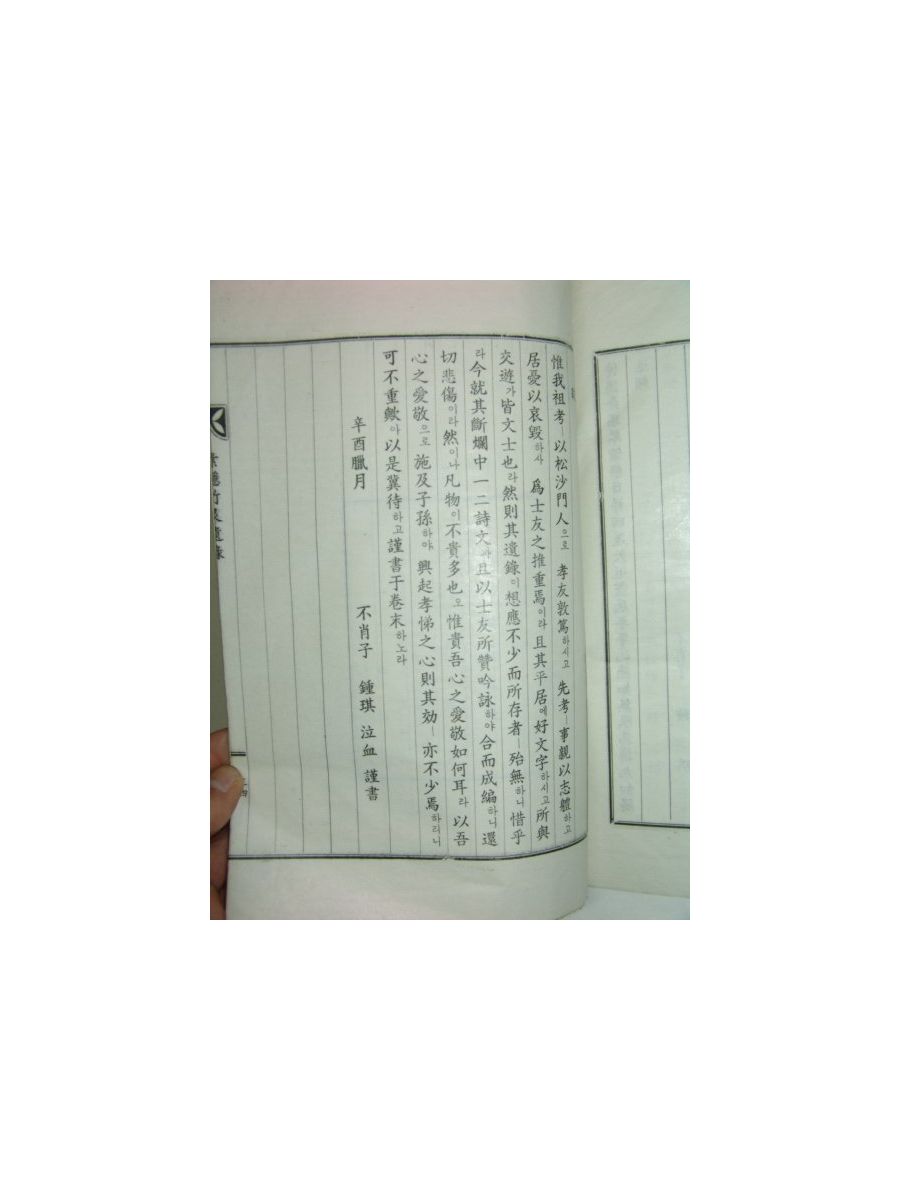 惟我祖考ㅣ以松沙門人으로 孝友敦篤하시고 先考ㅣ事親以志軆하고
居憂以哀毀하사 爲士友之推重焉이라且其平居에好文字하시고所與
交遊가皆文士也라然則其遺錄이想應不少而所存者ㅣ殆無하니惜乎
라今就其斷爛中一二詩文하야且以士友所贊吟詠하야合而成編하니還
切悲傷이라然이나凡物이不貴多也오惟貴吾心之愛敬如何耳라以吾
心之愛敬으로施及子孫하야興起孝悌之心則其効ㅣ亦不少焉하리니
可不重歟아以是冀待하고謹書于卷末하노라
辛酉臘月
不肖子 鍾琪 泣血 謹書
隱竹 遺錄